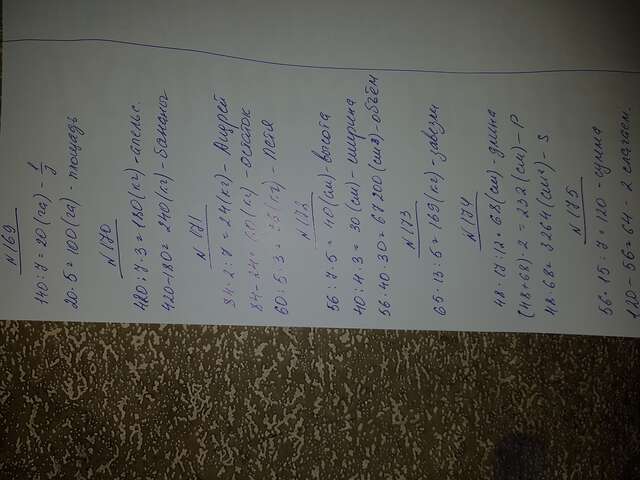 N 169
140 : 7 = 20 (га) - 1/7
20 · 5 = 100 (га) - площадь
N 170
420 : 7 · 3 = 180 (кг) - апельс.
420 - 180 = 240 (кг) - бананы
N 171
84 · 2 : 7 = 24 (кг) - Андрей
84 - 24 = 60 (кг) - остаток
60 : 5 · 3 = 36 (кг) - Петя
N 172
56 : 7 · 5 = 40 (см) - высота
40 : 4 · 3 = 30 (см) - ширина
56 · 40 · 30 = 67 200 (см³) - объём
N 173
65 · 13 : 5 = 169 (кг) - завезли
N 174
48 · 17 : 12 = 68 (см) - длина
(48 + 68) · 2 = 232 (см) - P
48 · 68 = 3264 (см²) - S
N 175
56 · 15 : 7 = 120 - сумма
120 - 56 = 64 - 2 слагаем.